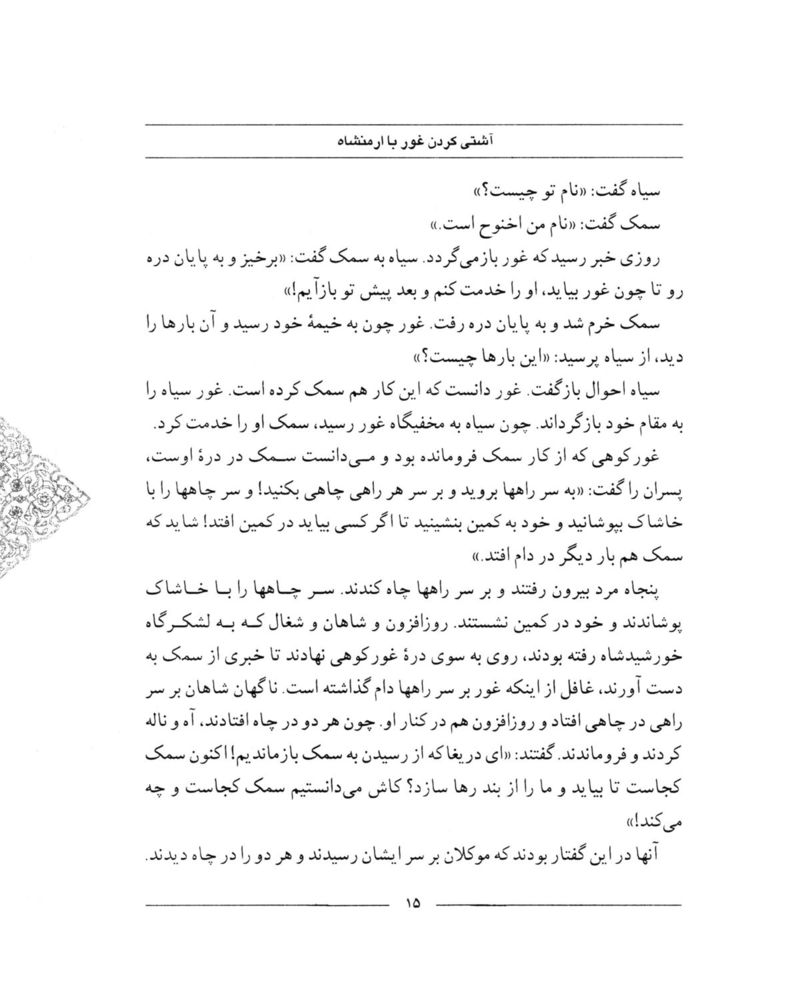 آشتی کردن غور با ارمنشاه
سیاه گفت: «نام تو چیست؟»
سمک گفت: «نام من اخنوح است.»
روزی خبر رسید که غور بازمی‌گردد. سیاه به سمک گفت: «برخیز و به پایان دره
رو تا چون غور بیاید، او را خدمت کنم و بعد پیش تو بازآیم!»
سمک خرم شد و به پایان دره رفت. غور چون به خیمهٔ خود رسید و آن بارها را
دید، از سیاه پرسید: «این بارها چیست؟»
سیاه احوال بازگفت. غور دانست که این کار هم سمک کرده است. غور سیاه را
به مقام خود بازگرداند. چون سیاه به مخفیگاه غور رسید، سمک او را خدمت کرد.
غورکوهی که از کار سمک فرومانده بود و می‌دانست سمک در درهٔ اوست،
پسران را گفت: «به سر راهها بروید و بر سر هر راهی چاهی بکنید! و سر چاهها را با
خاشاک بپوشانید و خود به کمین بنشینید تا اگر کسی بیاید در کمین افتد! شاید که
سمک هم بار دیگر در دام افتد.»
پنجاه مرد بیرون رفتند و بر سر راهها چاه کندند. سر چاهها را با خاشاک
پوشاندند و خود در کمین نشستند. روزافزون و شاهان و شغال که به لشکرگاه
خورشیدشاه رفته بودند، روی به سوی درهٔ غورکوهی نهادند تا خبری از سمک به
دست آورند، غافل از اینکه غور بر سر راهها دام گذاشته است. ناگهان شاهان بر سر
راهی در چاهی افتاد و روزافزون هم در کنار او. چون هر دو در چاه افتادند، آه و ناله
کردند و فروماندند. گفتند: «ای دریغا که از رسیدن به سمک بازماندیم! اکنون سمک
کجاست تا بیاید و ما را از بند رها سازد؟ کاش می‌دانستیم سمک کجاست و چه
می‌کند!»
آنها در این گفتار بودند که موکلان بر سر ایشان رسیدند و هر دو را در چاه دیدند.
۱۵